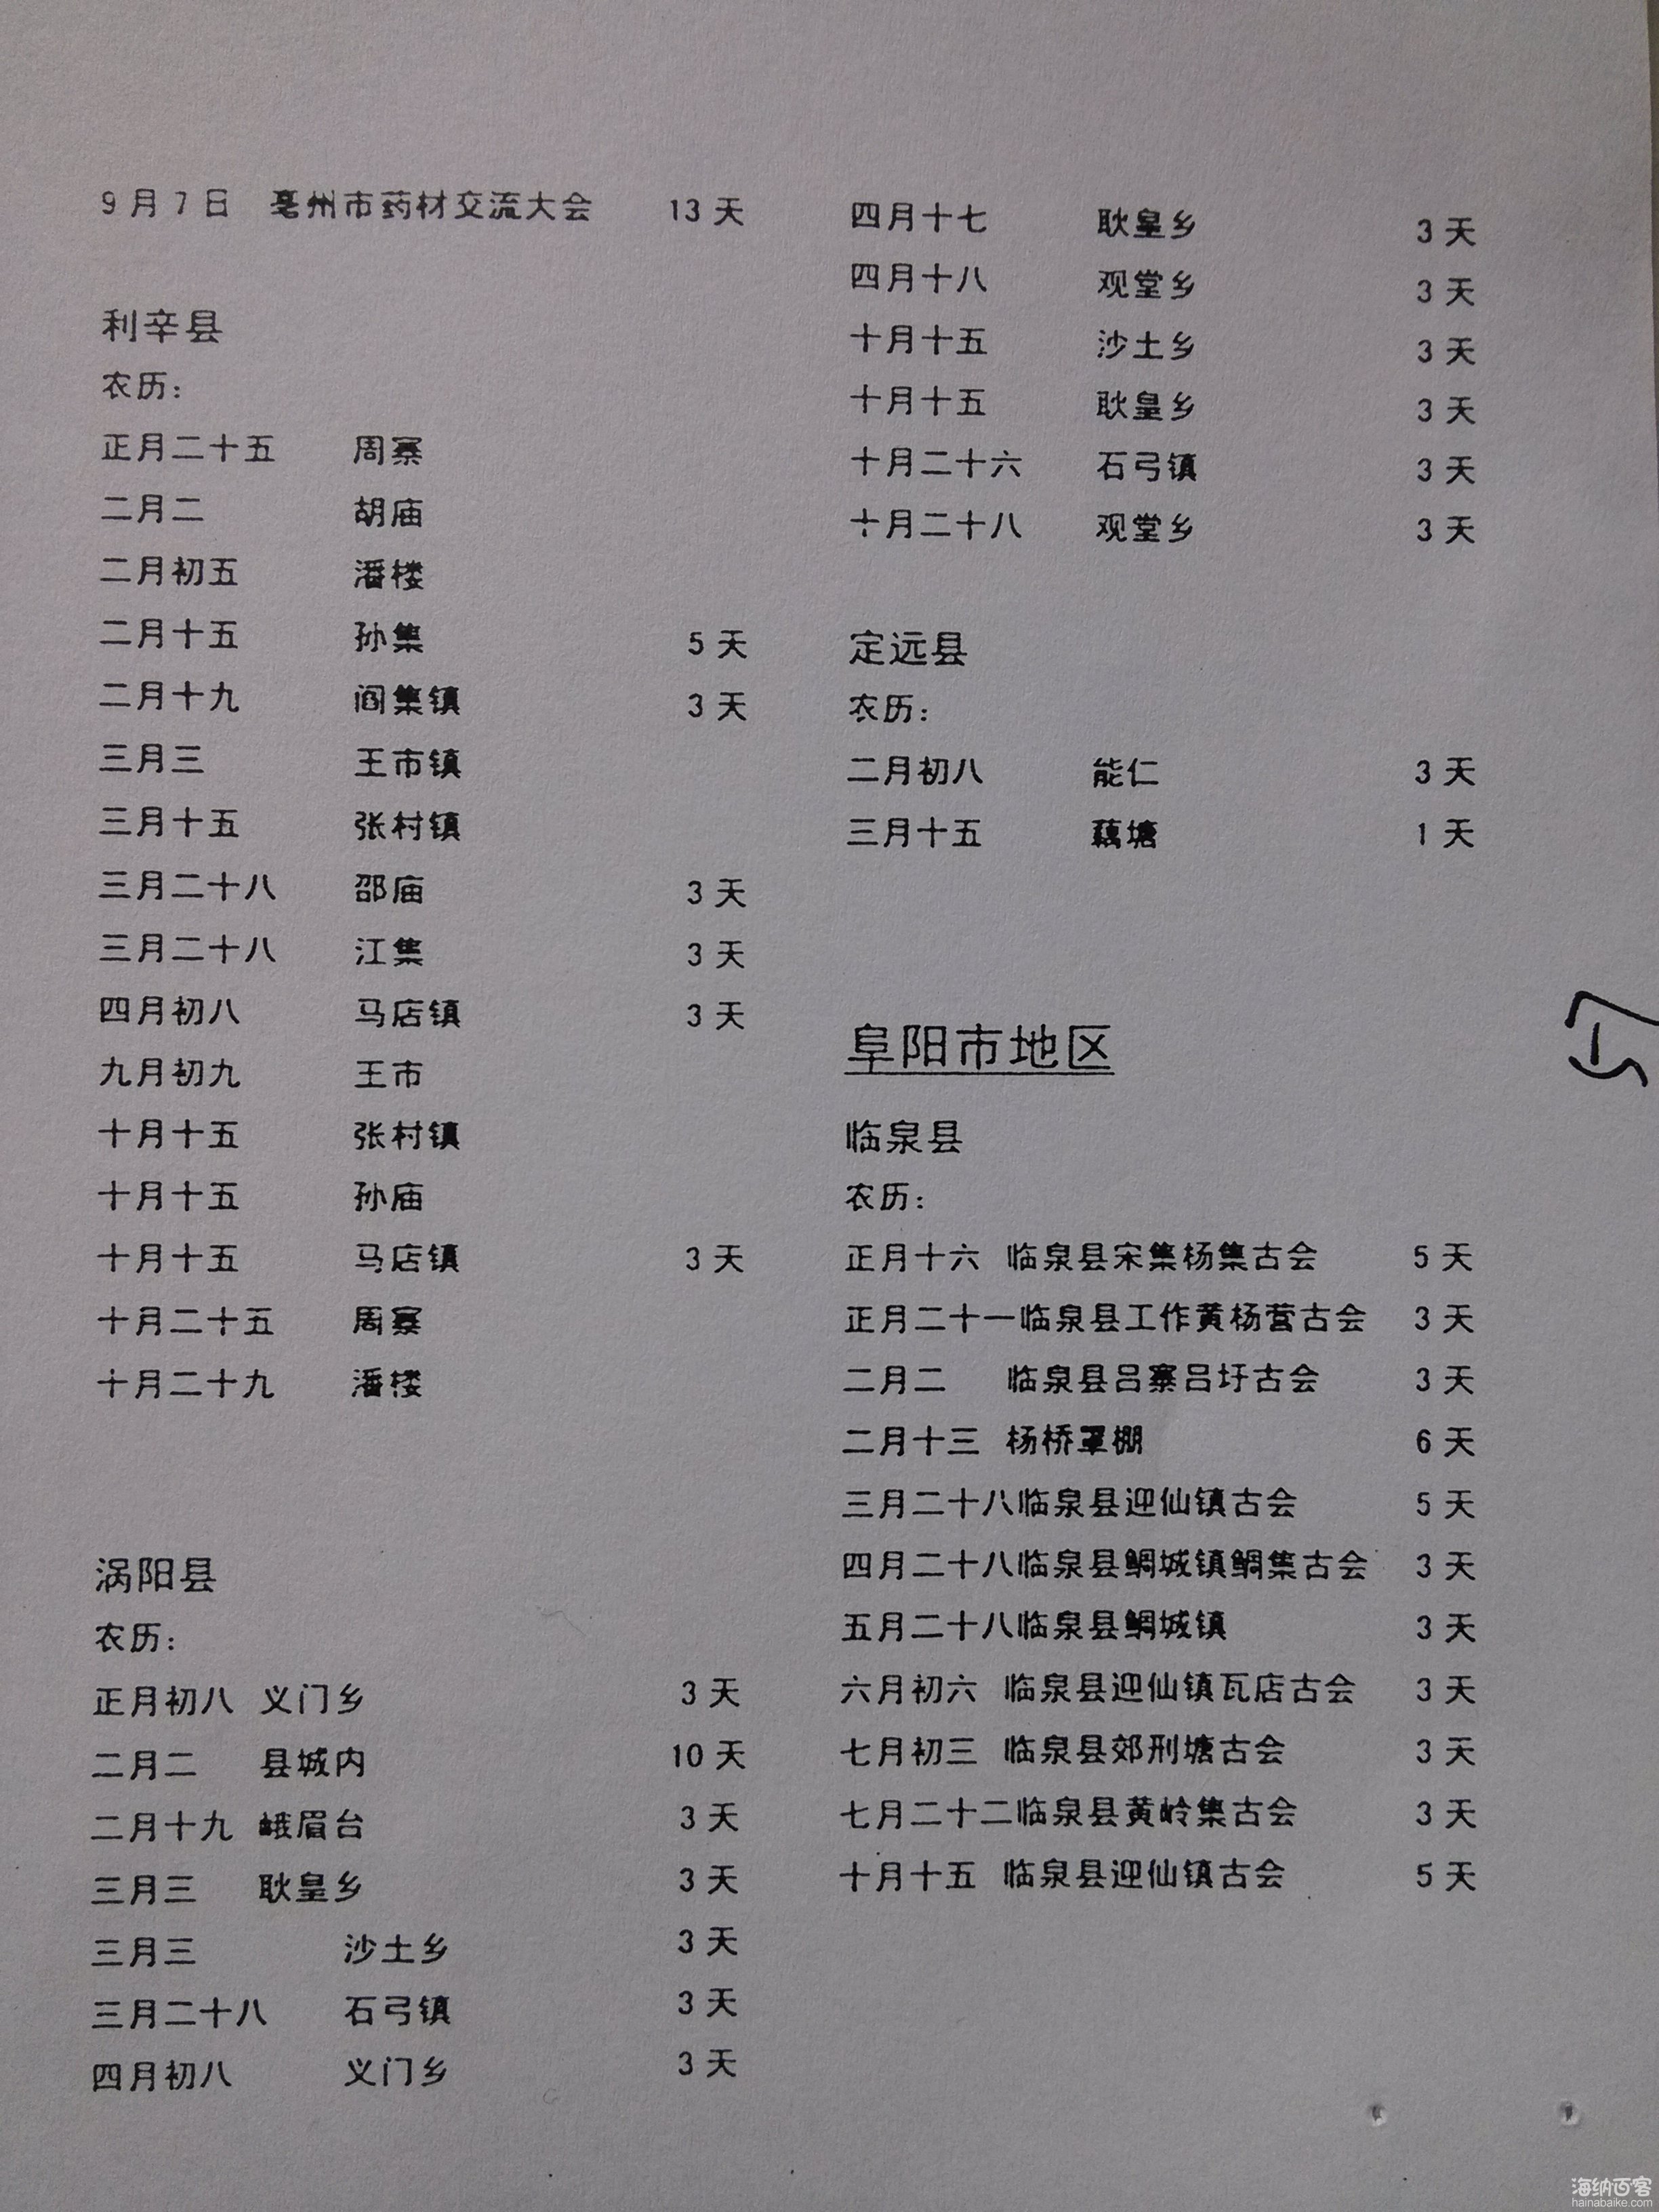 9月7日 亳州市药材交流大会 13天
利辛县
农历:
正月二十五 周寨
二月二 胡庙
二月初五 潘楼
二月十五 孙集 5天
二月十九 阎集镇 3天
三月三 王市镇
三月十五 张村镇
三月二十八 邵庙 3天
三月二十八 江集 3天
四月初八 马店镇 3天
九月初九 王市
十月十五 张村镇
十月十五 孙庙
十月十五 马店镇 3天
十月二十五 周寨
十月二十九 潘楼
涡阳县
农历:
正月初八 义门乡 3天
二月二 县城内 10天
二月十九 峨眉台 3天
三月三 耿皇乡 3天
三月三 沙土乡 3天
三月二十八 石弓镇 3天
四月初八 义门乡 3天
四月十七 耿皇乡 3天
四月十八 观堂乡 3天
十月十五 沙土乡 3天
十月十五 耿皇乡 3天
十月二十六 石弓镇 3天
十月二十八 观堂乡 3天
定远县
农历:
二月初八 能仁 3天
三月十五 藕塘 1天
阜阳市地区
临泉县
农历:
正月十六 临泉县宋集杨集古会 5天
正月二十一临泉县工作黄杨营古会 3天
二月二 临泉县吕寨吕圩古会 3天
二月十三 杨桥罩棚 6天
三月二十八临泉县迎仙镇古会 5天
四月二十八临泉县鲷城镇鲷集古会 3天
五月二十八临泉县鲷城镇 3天
六月初六 临泉县迎仙镇瓦店古会 3天
七月初三 临泉县郊刑塘古会 3天
七月二十二临泉县黄岭集古会 3天
十月十五 临泉县迎仙镇古会 5天
海纳百客
hainabaike.com